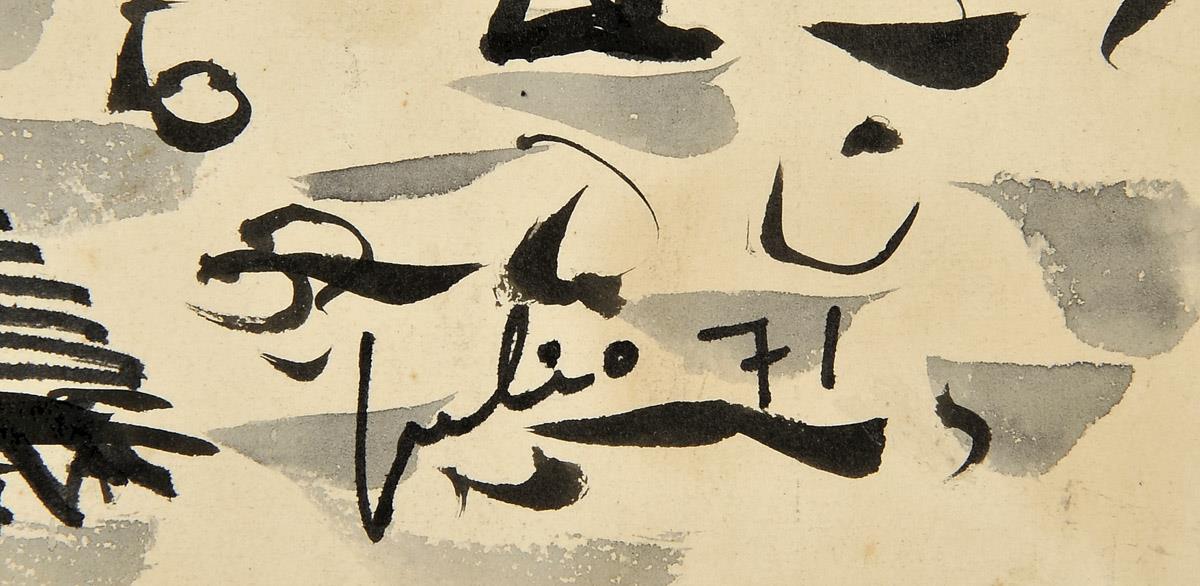 Julio 71